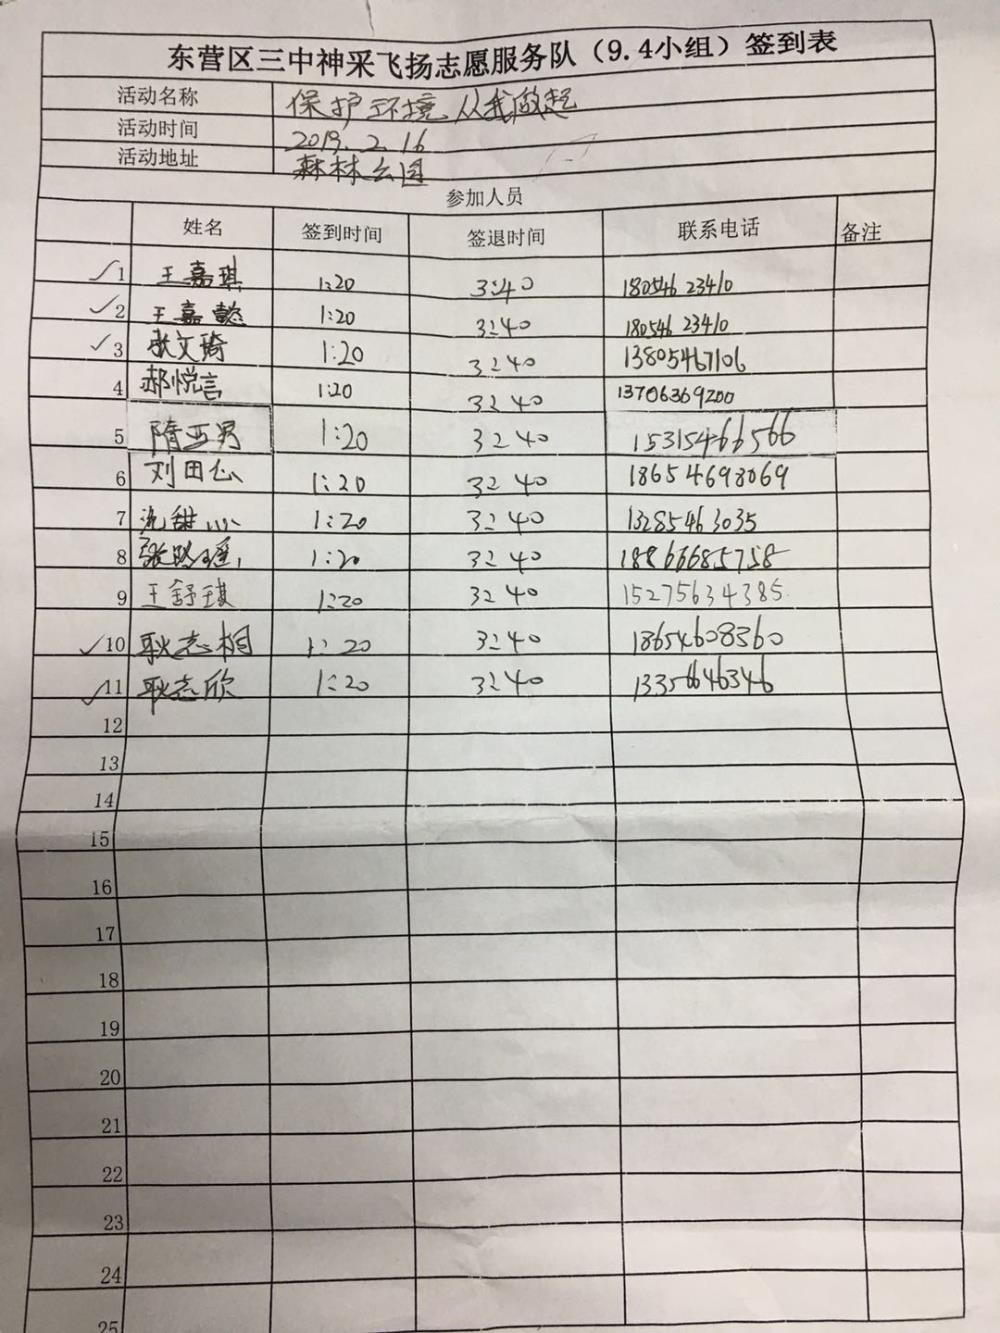 东营区三中神采飞扬志愿服务队（9.4小组）签到表
活动名称 保护环境 从我做起
活动时间 2019.2.16
活动地址 森林公园
参加人员
姓名 签到时间 签退时间 联系电话 备注
1 王嘉琪 1:20 3:40 18054623410
2 王嘉懿 1:20 3:40 18054623410
3 张文琦 1:20 3:40 13805467106
4 郝悦言 1:20 3:40 13706369200
5 隋亚男 1:20 3:40 15315466566
6 刘田 1:20 3:40 18654698069
7 甜 1:20 3:40 13285463035
8 张 1:20 3:40 18866685758
9 王舒琪 1:20 3:40 15275634385
10 耿志桐 1:20 3:40 18654608360
11 耿志欣 1:20 3:40 13356646346
12
13
14
15
16
17
18
19
20
21
22
23
24
25